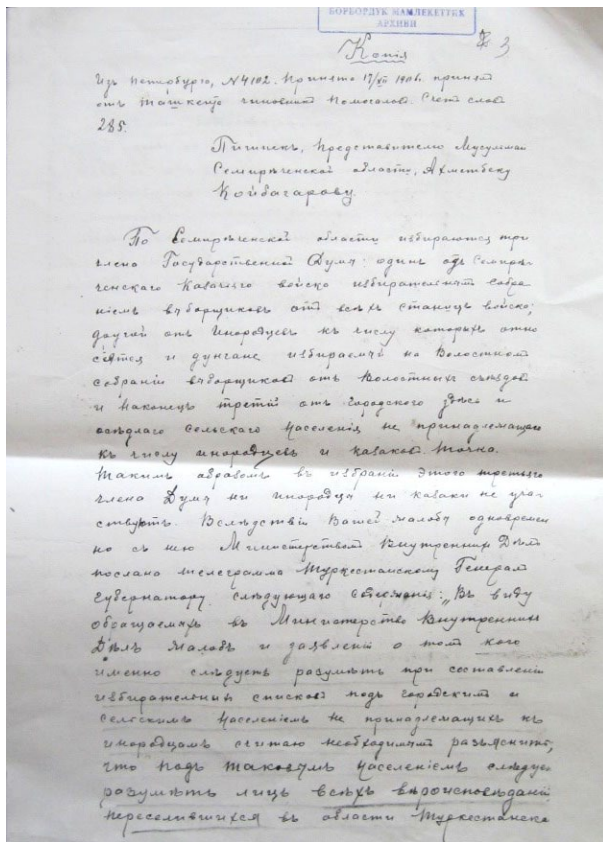 БОРБОРДУК МАМЛЕКЕТТИК
АРХИВИ
3
Копія
Изъ Петербурга, №4102. Принята 17/XII 1906. принял
отъ Ташкента чиновник Счет слов
285.
Пишпекъ, Представителю Мусульман
Семирѣченской области, Ахметбеку
Койбагарову
По Семирѣченской области избираются три
члена Государственной Думы: одинъ отъ Семирѣ
ченскаго Казачьяго войска избирателемъ собра
ніемъ выборщиковъ отъ всѣхъ станицъ войска;
другой отъ Инородцевъ къ числу которыхъ отно
сятся и дунгане избираемый на Волостномъ
собраніи выборщиковъ отъ Волостныхъ съѣздовъ
и наконецъ третій отъ городского здѣсь и
осѣдлаго сельскаго населенія не принадлежащаго
къ числу инородцевъ и казаковъ. точка.
Такимъ образомъ въ избраніи этого третьяго
члена Думы ни инородцы ни казаки не учав
ствуютъ. Вслѣдствіи Вашей жалобы одновремен
но съ нею Министерствомъ Внутреннихъ Дѣлъ
послана телеграмма Туркестанскому Генералъ
Губернатору слѣдующаго содержанія: „Въ виду
обращаемыхъ въ Министерство Внутреннихъ
Дѣлъ жалобъ и заявленій о томъ кого
именно слѣдуетъ разумѣть при составленіи
избирательныхъ списковъ подъ городскимъ и
сельскимъ населеніемъ не принадлежащихъ къ
инородцамъ считаю необходимымъ разъяснить,
что подъ таковымъ населеніемъ слѣдуе
разумѣть лицъ всѣхъ вѣроисповѣданій
переселившихся въ области Туркестанска